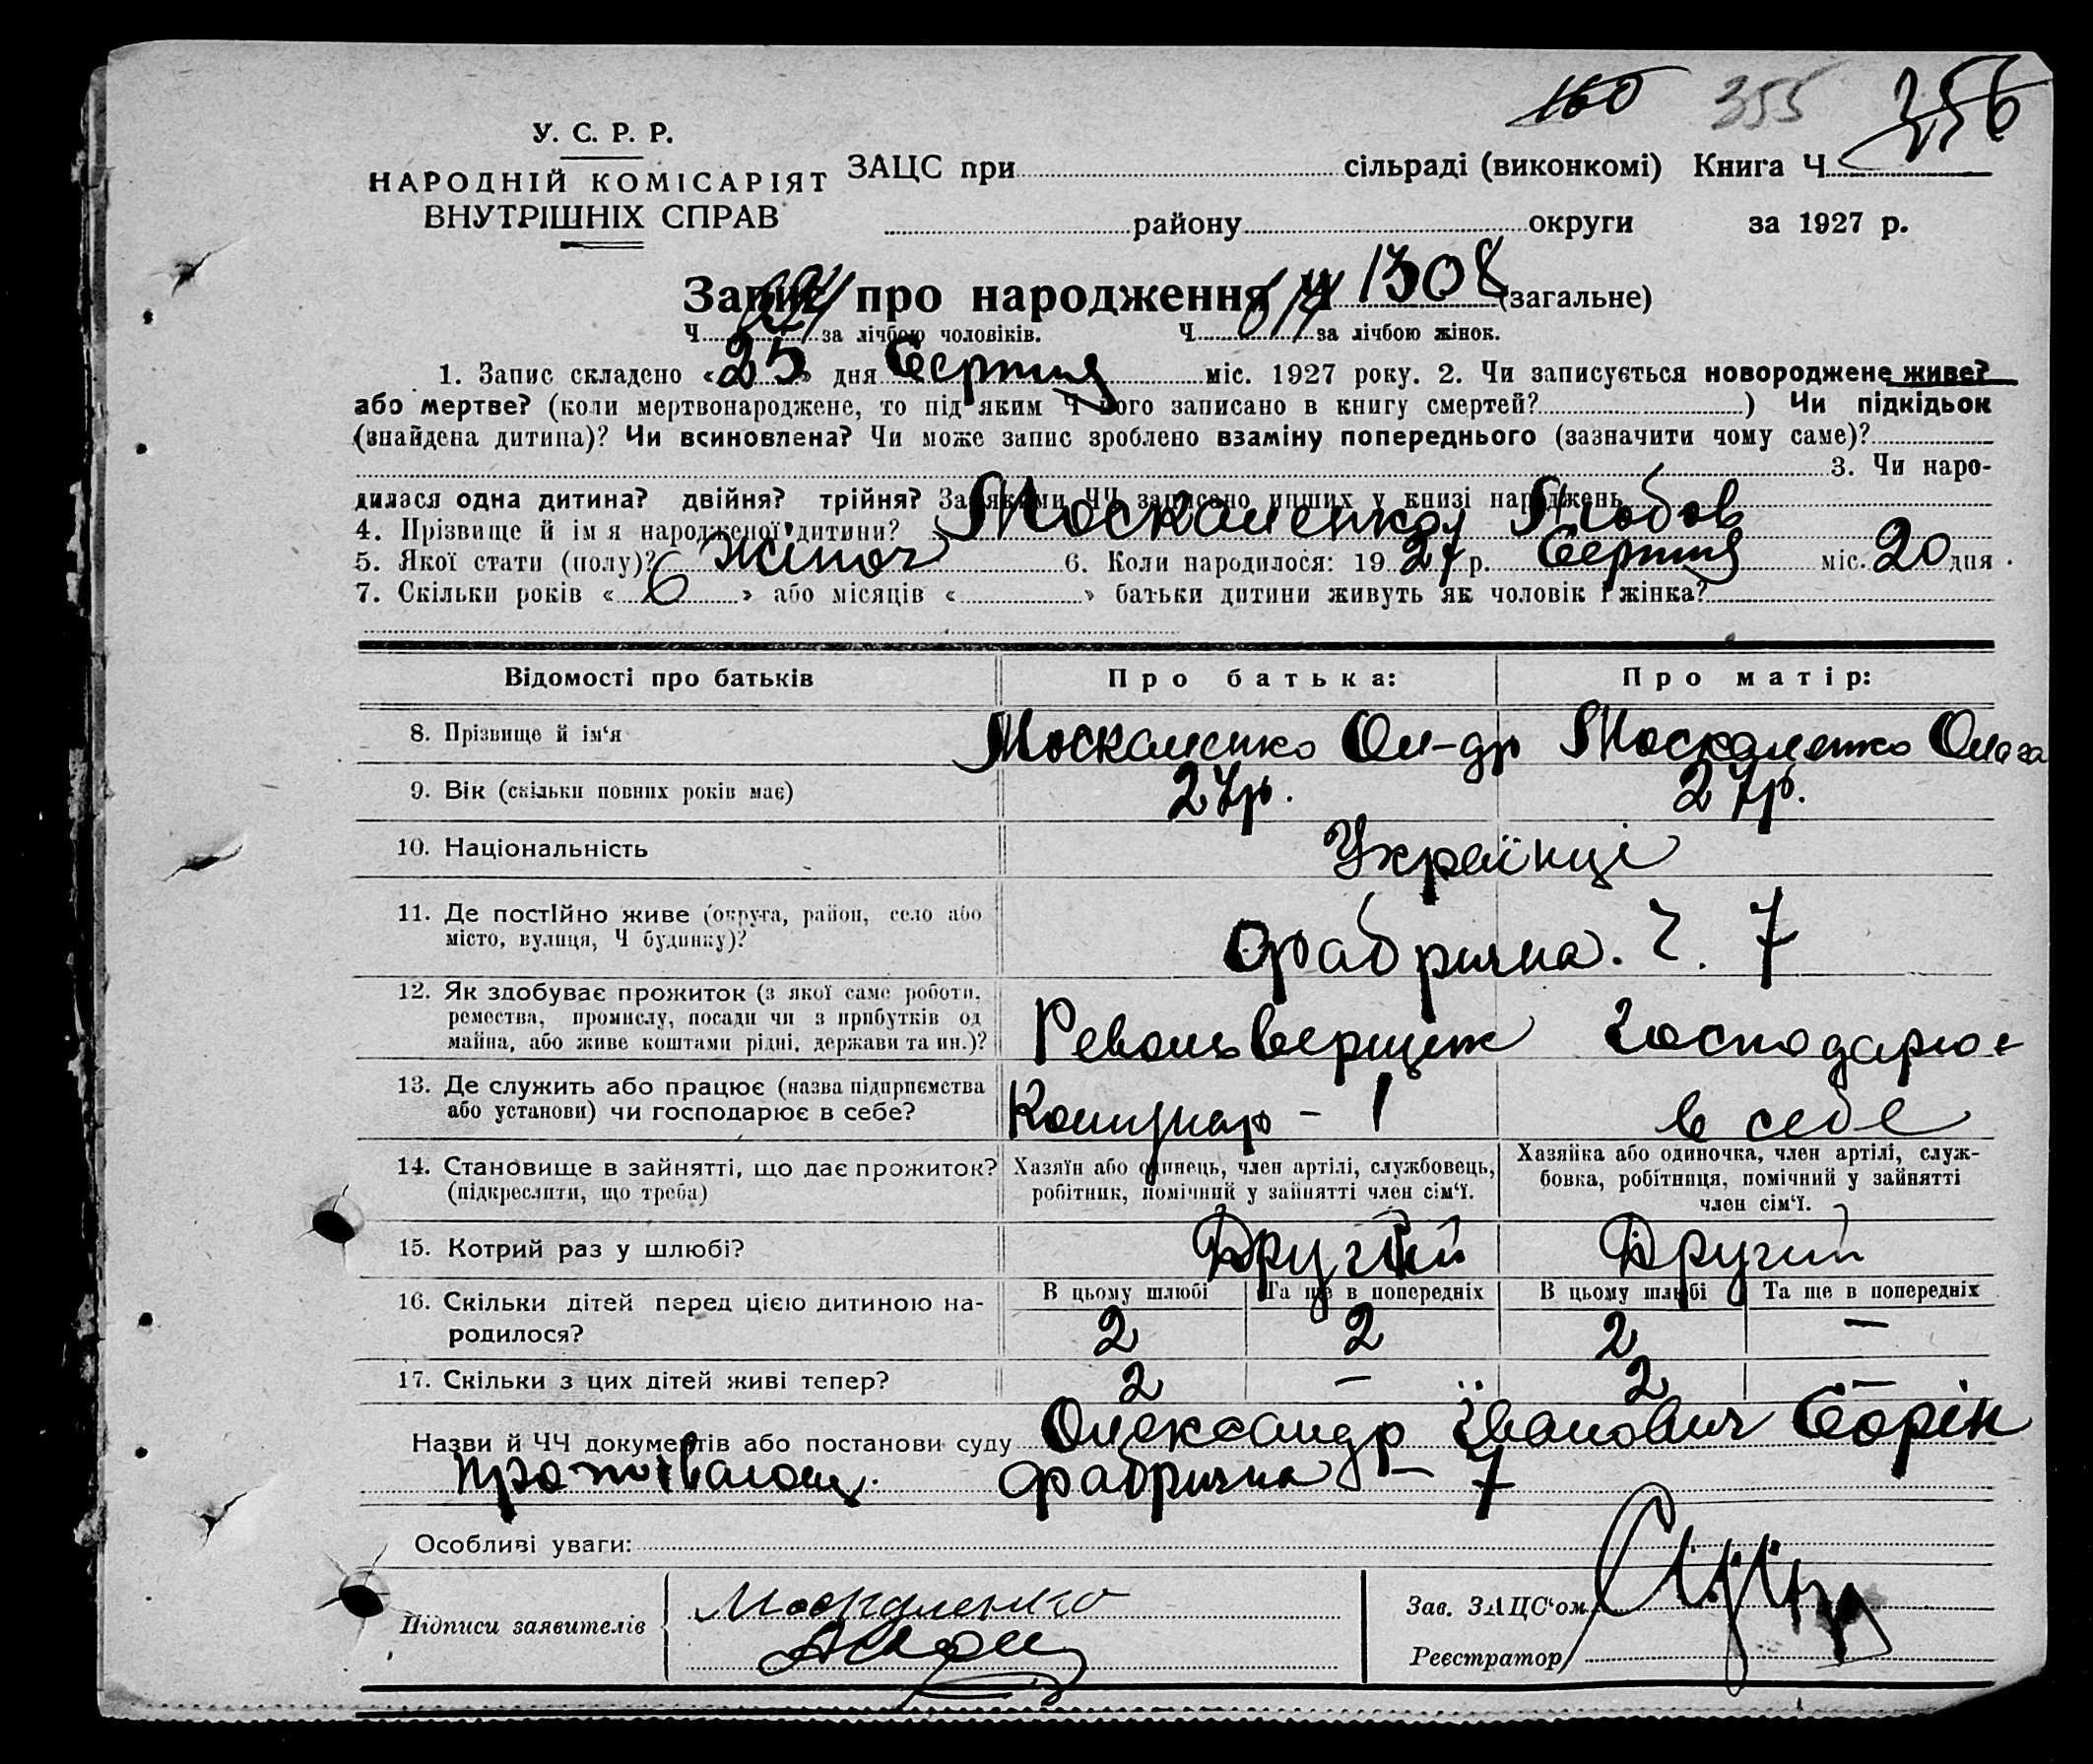 160 355 356
У. С. Р. Р.
НАРОДНІЙ КОМІСАРІЯТ
ВНУТРІШНІХ СПРАВ
ЗАЦС при сільраді (виконкомі) Книга Ч.
району округи за 1927 р.
Запис про народження Ч 1308 (загальне)
Ч. за лічбою чоловіків. Ч. 614 за лічбою жінок.
1. Запис складено « 25 » дня Серпня міс. 1927 року. 2. Чи записується новороджене живе?
або мертве? (коли мертвонароджене, то під яким Ч його записано в книгу смертей? ) Чи підкідьок
(знайдена дитина)? Чи всиновлена? Чи може запис зроблено взаміну попереднього (зазначити чому саме)?
3. Чи наро-
дилася одна дитина? двійня? трійня? За якими ЧЧ записано инших у книзі народжень
4. Прізвище й ім я народженої дитини? Москаленко Любов
5. Якої стати (полу)? Жіноч 6. Коли народилося: 19 27 р. Серпня міс. 20 дня
7. Скільки років « 6 » або місяців « » батьки дитини живуть як чоловік і жінка?
Відомості про батьків Про батька: Про матір:
8. Прізвище й ім‘я Москаленко Ол-др Москаленко Ольга
9. Вік (скільки повних років має) 27р. 27р.
10. Національність Українці
11. Де постійно живе (округа, район, село або
місто, вулиця, Ч будинку)?
Фабрична. Ч. 7
12. Як здобуває прожиток (з якої саме роботи,
ремества, промислу, посади чи з прибутків од
майна, або живе коштами рідні, держави та ин.)?
Револьверщик Господарює
13. Де служить або працює (назва підпрпємства
або установи) чи господарює в себе?
Комунар - 1 в себе
14. Становище в зайнятті, що дає прожиток?
(підкреслити, що треба)
Хазяїн або одинець, член артілі, службовець,
робітник, помічний у зайнятті член сім‘ї.
Хазяйка або одиночка, член артілі, служ-
бовка, робітниця, помічний у зайнятті
член сім‘ї.
15. Котрий раз у шлюбі? Другий Другий
16. Скільки дітей перед цією дитиною на-
родилося?
В цьому шлюбі Та ще в попередніх В цьому шлюбі Та ще в попередніх
2 2 2 —
17. Скільки з цих дітей живі тепер? 2 — 2 —
Назви й ЧЧ документів або постанови суду Олександр Іванович Сорін
Фабрична – 7
Особливі уваги:
Підписи заявителів Москаленко
Зав. ЗАЦС‘ом
Реєстратор